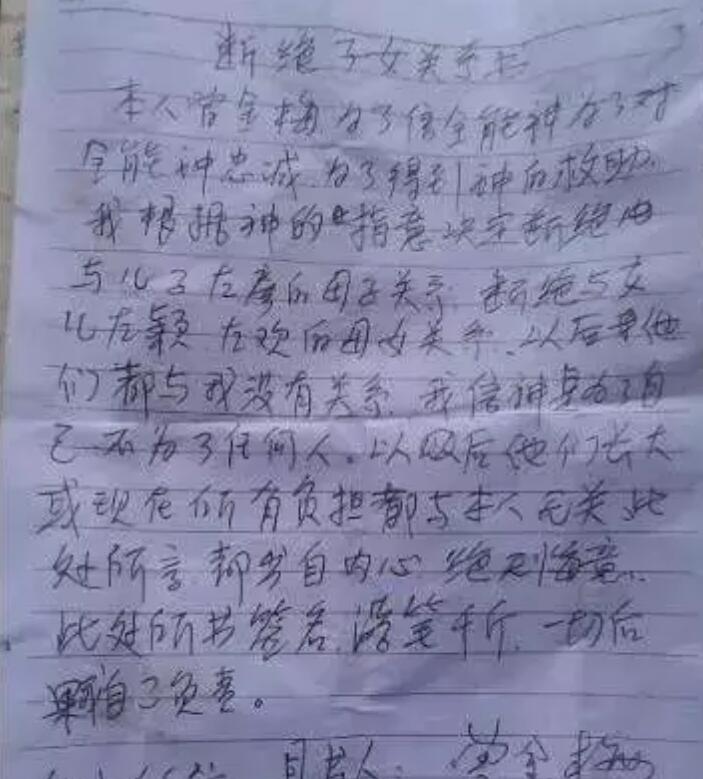 断绝子女关系书
本人曾金梅为了信全能神为了对
全能神忠诚.为了得到神的救助.
我根据神的指意决定断绝
与儿子左彦的母子关系.断绝与女
儿左颖.左欢的母女关系.以后他
们都与我没有关系.我信神是为了自
己不为了任何人.以后他们长大
或现在所有负担都与本人无关此
处所言都出自内心绝无悔意.
此处所书签名.落笔千斤.一切后
果自己负责。
具书人:曾金梅